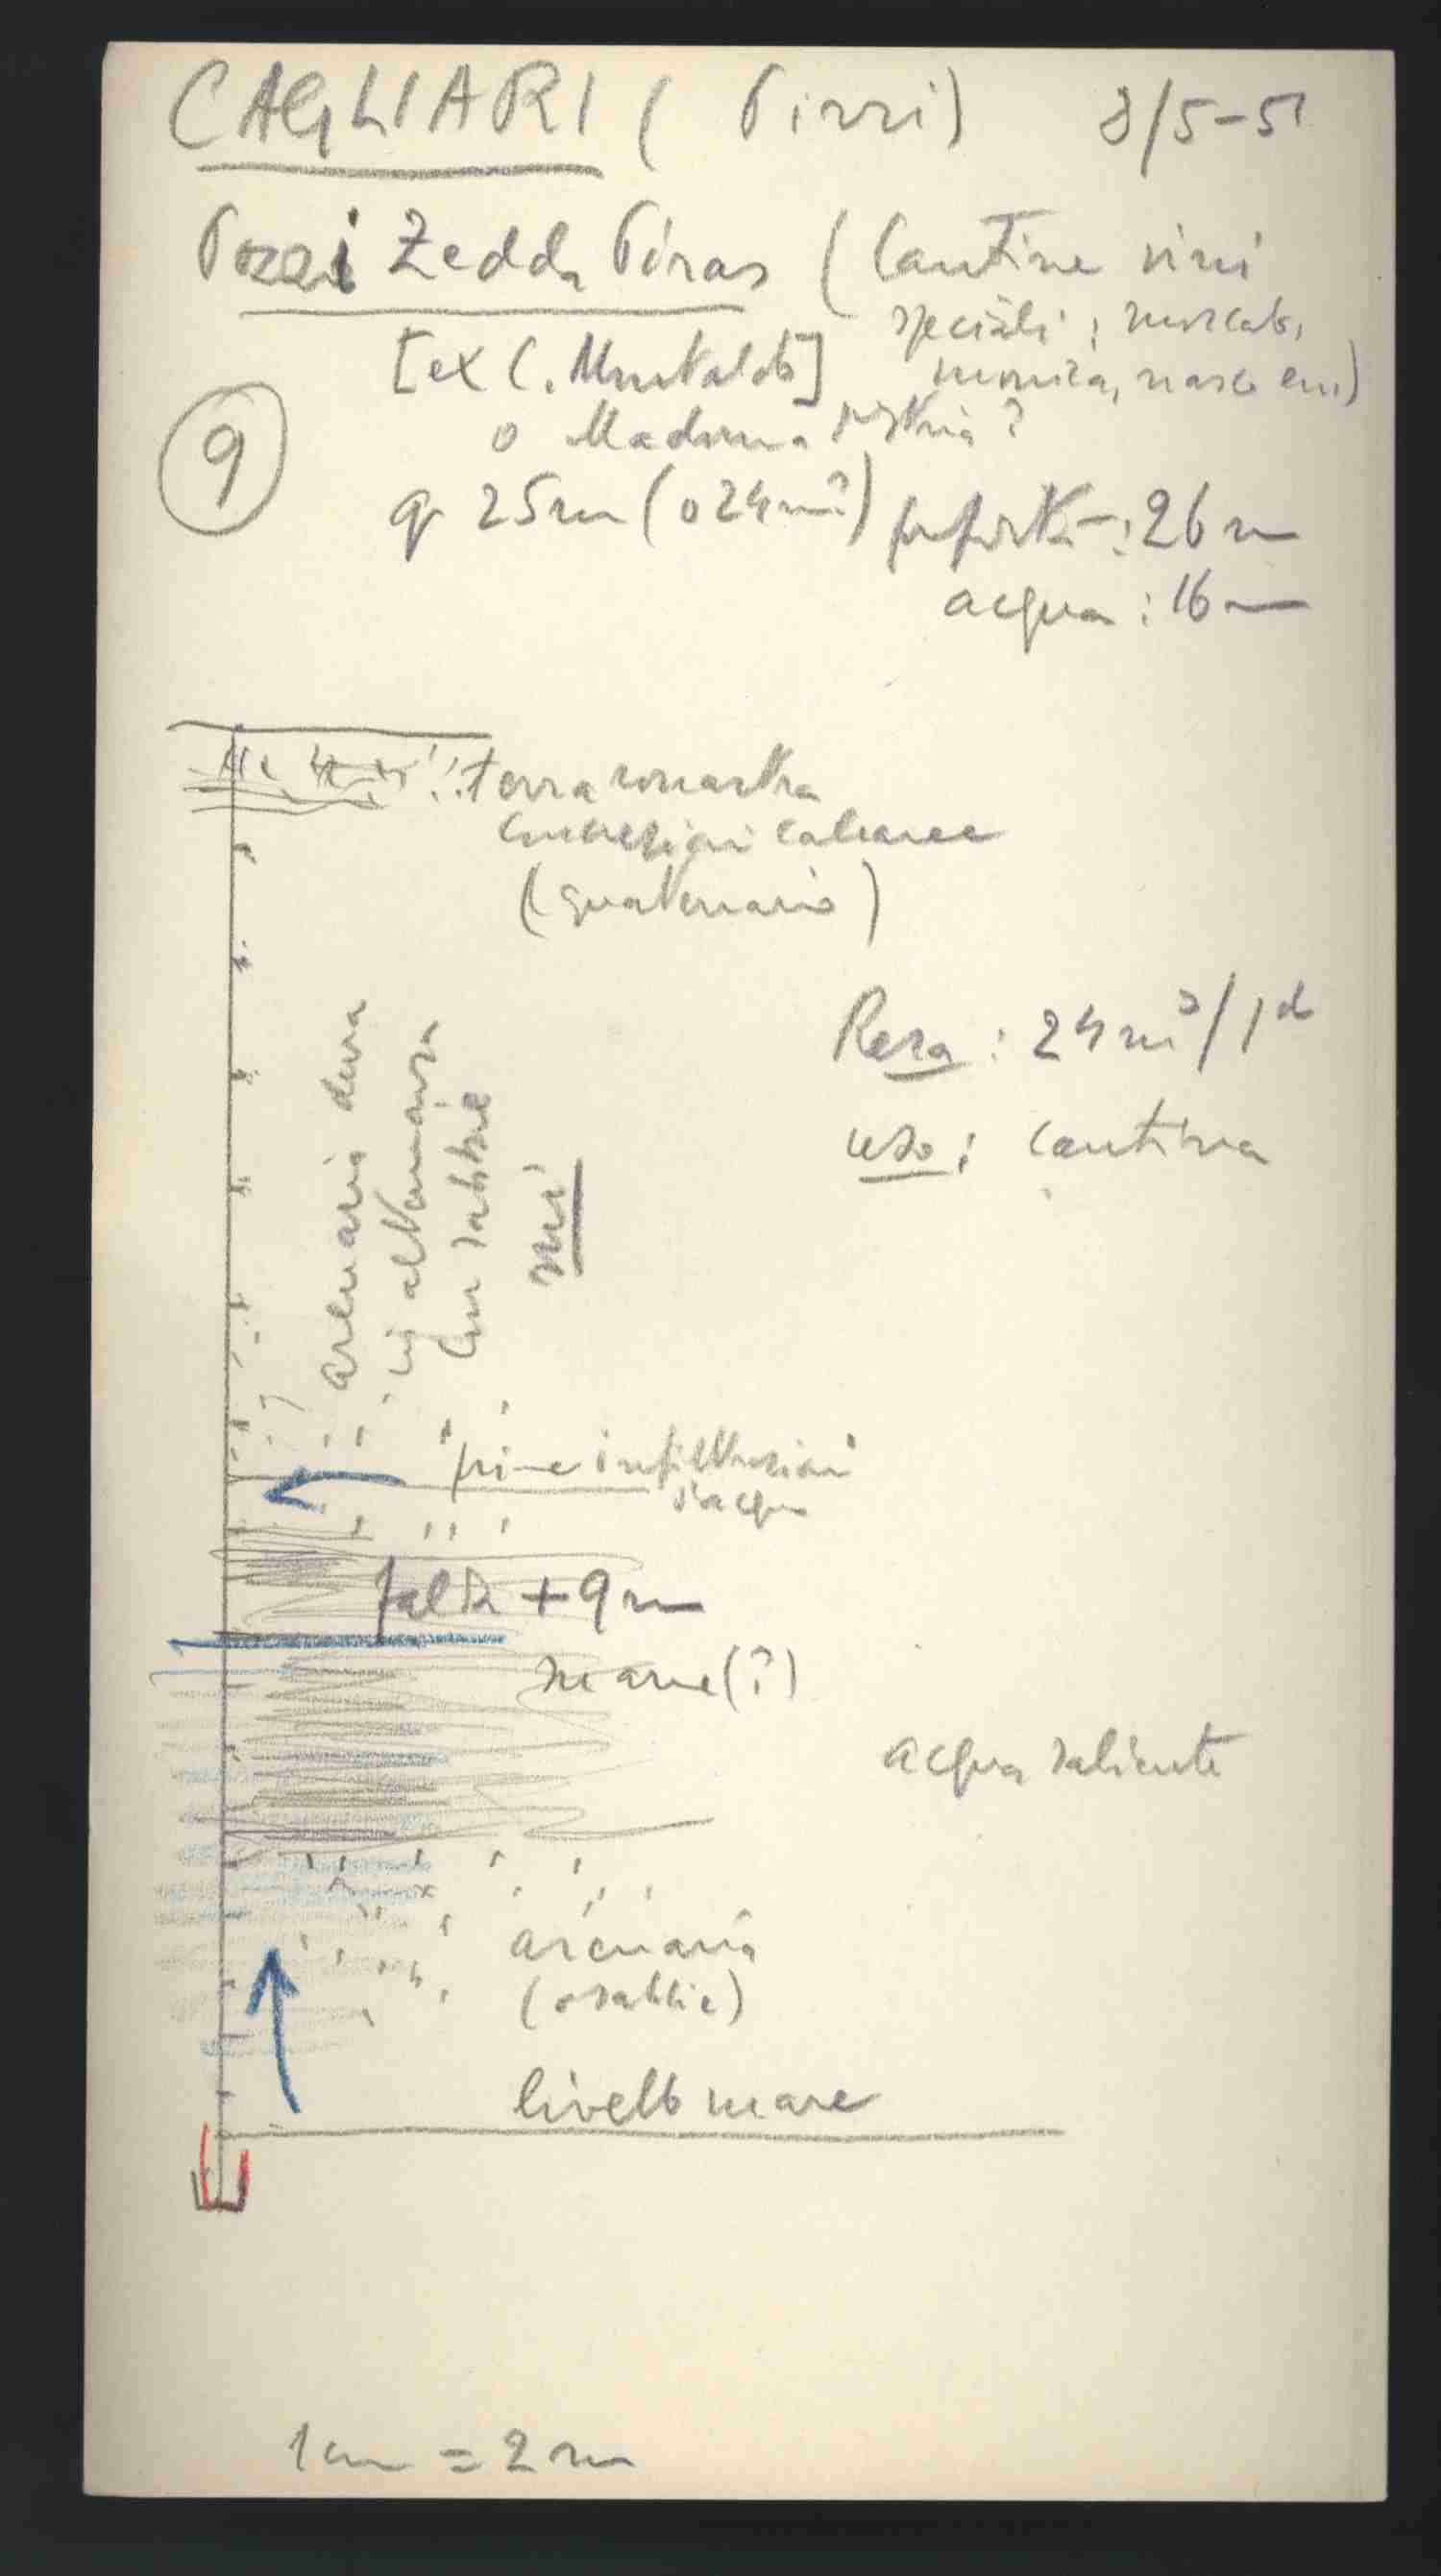 CAGLIARI ( Pirri) 8/5-51
Pozzi Zedda Piras (Cantine vini
speciali: moscato,
[ex C. Muntaldo] monica, nasco ecc)
o Madama
9
q 25m (o 24m?) : 26 m
acqua : 16 m
terra rossastra
concrezioni calcaree
(quaternario)
Resa : 24 m³/1d
uso : cantina
arenaria dura
in alternanza
con sabbie
prime infiltrazioni
d'acqua
falda + 9 m
marne (?)
acqua saliente
arenaria
(o sabbie)
livello mare
1 cm = 2 m